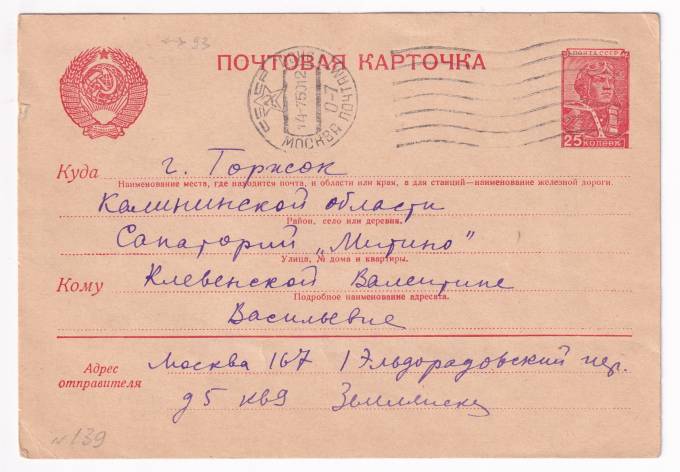 ↔ 93
ПОЧТОВАЯ КАРТОЧКА
ПОЧТА СССР
25 КОПЕЕК
СССР
14-7 50 12
0-7
МОСКВА ПОЧТАМТ
Куда г. Торжок
Наименование места, где находится почта, и области или края, а для станций—наименование железной дороги.
Калининской области
Район, село или деревня.
Санаторий „Митино"
Улица, № дома и квартиры.
Кому Клевенской Валентине
Подробное наименование адресата.
Васильевне
Адрес отправителя
Москва 167 1 Эльдорадовский пер.
д 5 кв 9
N 139